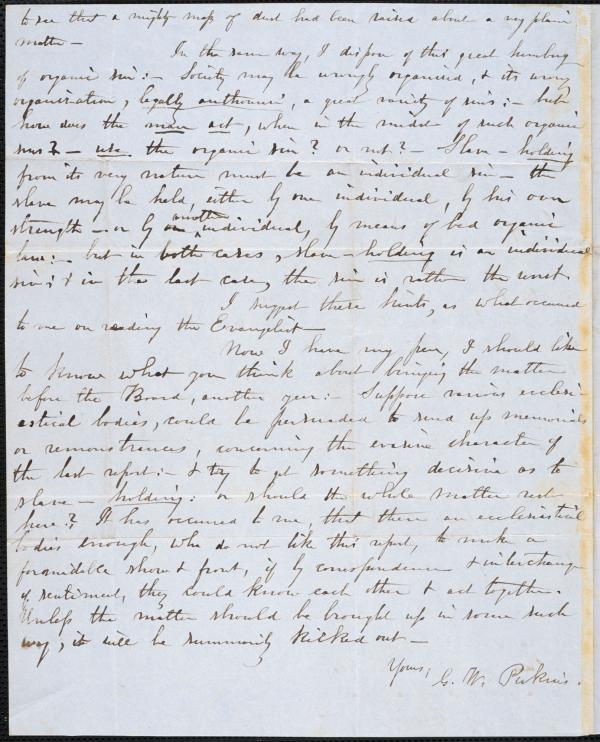 to see that a mighty mass of dust had been raised about a very plain
matter —
In the same way, I dispose of this great humbug
of organic sin: — Society may be wrongly organized, & its wrong
organization, legally authorize, a great variety of sins: — but
how does the man act, when in the midst of such organic
sins? — use the organic sin? or not? — Slave - holding
from its very nature must be an individual sin — the
slave may be held, either by one individual, by his own
strength — or by another individual, by means of bad organic
laws: — but in both cases, slave - holding is an individual
sin: & in the last case, the sin is rather the worst.
I suggest these hints, as what occurred
to me on reading the Evangelist —
Now I have my pen, I should like
to know what you think about bringing the matter
before the Board, another year: — Suppose various ecclesi-
astical bodies, could be persuaded to send up memorials
or remonstrances, concerning the evasive character of
the last report: — & try to get something decisive as to
slave - holding: or should the whole matter rest
here? It has occurred to me, that there are ecclesiastical
bodies enough, who do not like this report, to make a
formidable show & front, if by correspondence & interchange
of sentiment, they could know each other & act together.
Unless the matter should be brought up in some such
way, it will be summarily kicked out —
Yours,
G. W. Perkins.